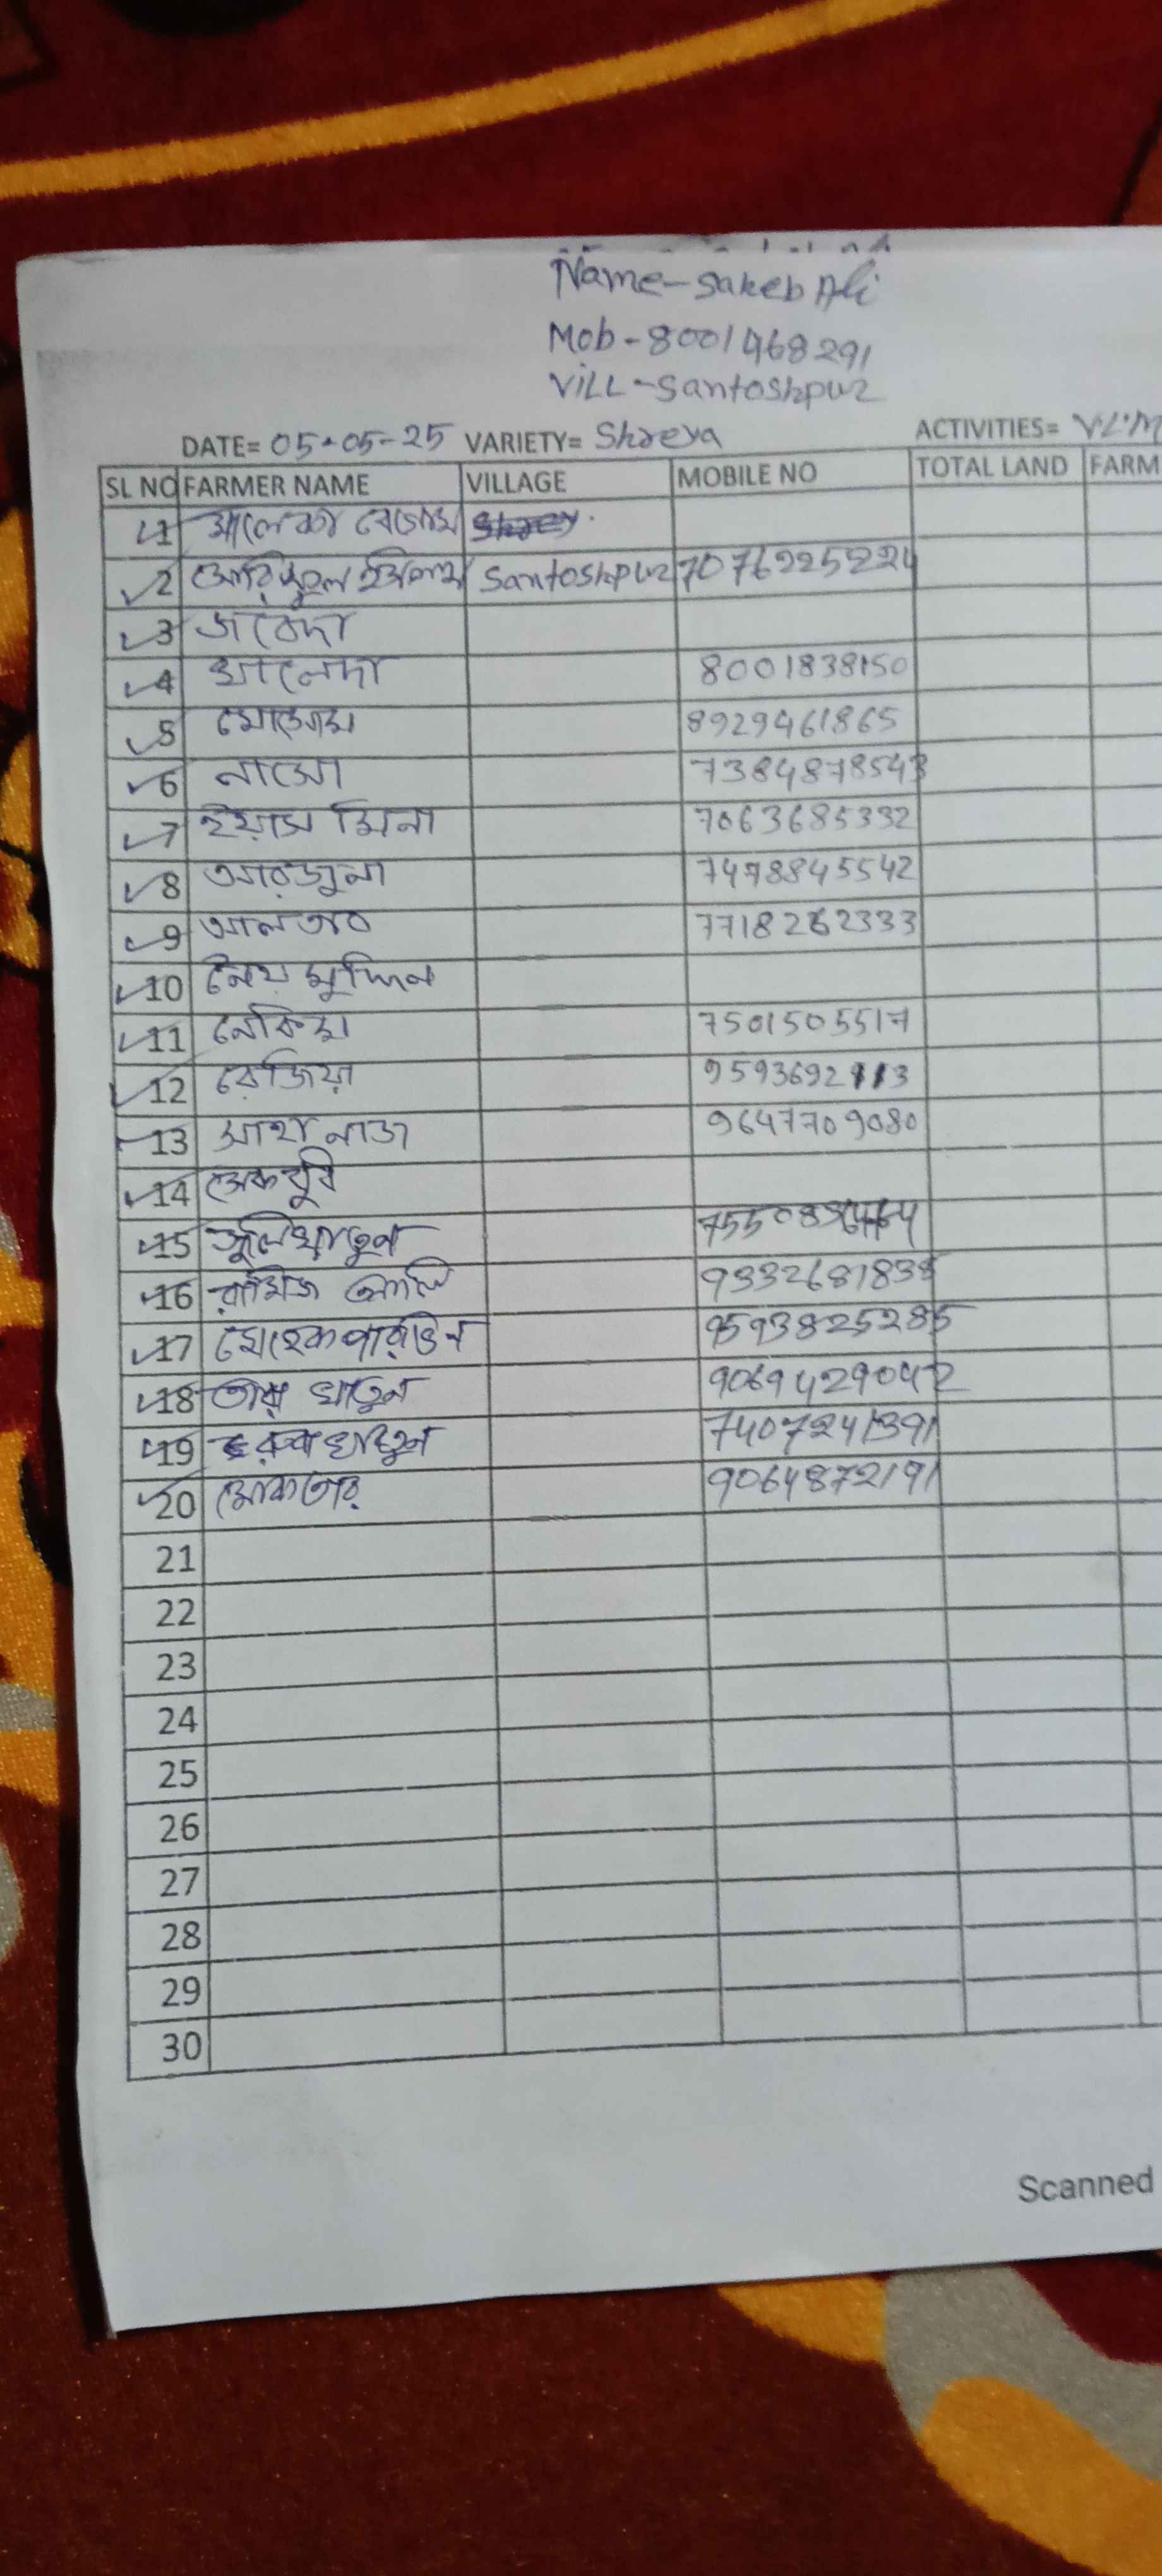 Name-Sakeb Ali
Mob-8001468291
VILL-Santoshpur
DATE= 05-05-25 VARIETY= Shreya ACTIVITIES= V.L.M
SL NO FARMER NAME VILLAGE MOBILE NO TOTAL LAND FARM
1 মালেকা বেগম
2 আরিফুল ইসলাম Santoshpur 7076225224
3 জবেদা
4 খালেদা 8001838150
5 8929461865
6 7384878543
7 ইয়াসমিনা 7063685332
8 আরজুনা 7478845542
9 আলতাব 7718262333
10
11 7501505517
12 রেজিয়া 9593692113
13 সাহানাজ 9647709080
14
15 জুলিখাতুন
16 রামিজ আলি 9332681838
17 মেহেকপারভিন 9593825285
18 খাতুন 9069429042
19 খাতুন 7407241391
20 মোকতার 9064872191
21
22
23
24
25
26
27
28
29
30
Scanned